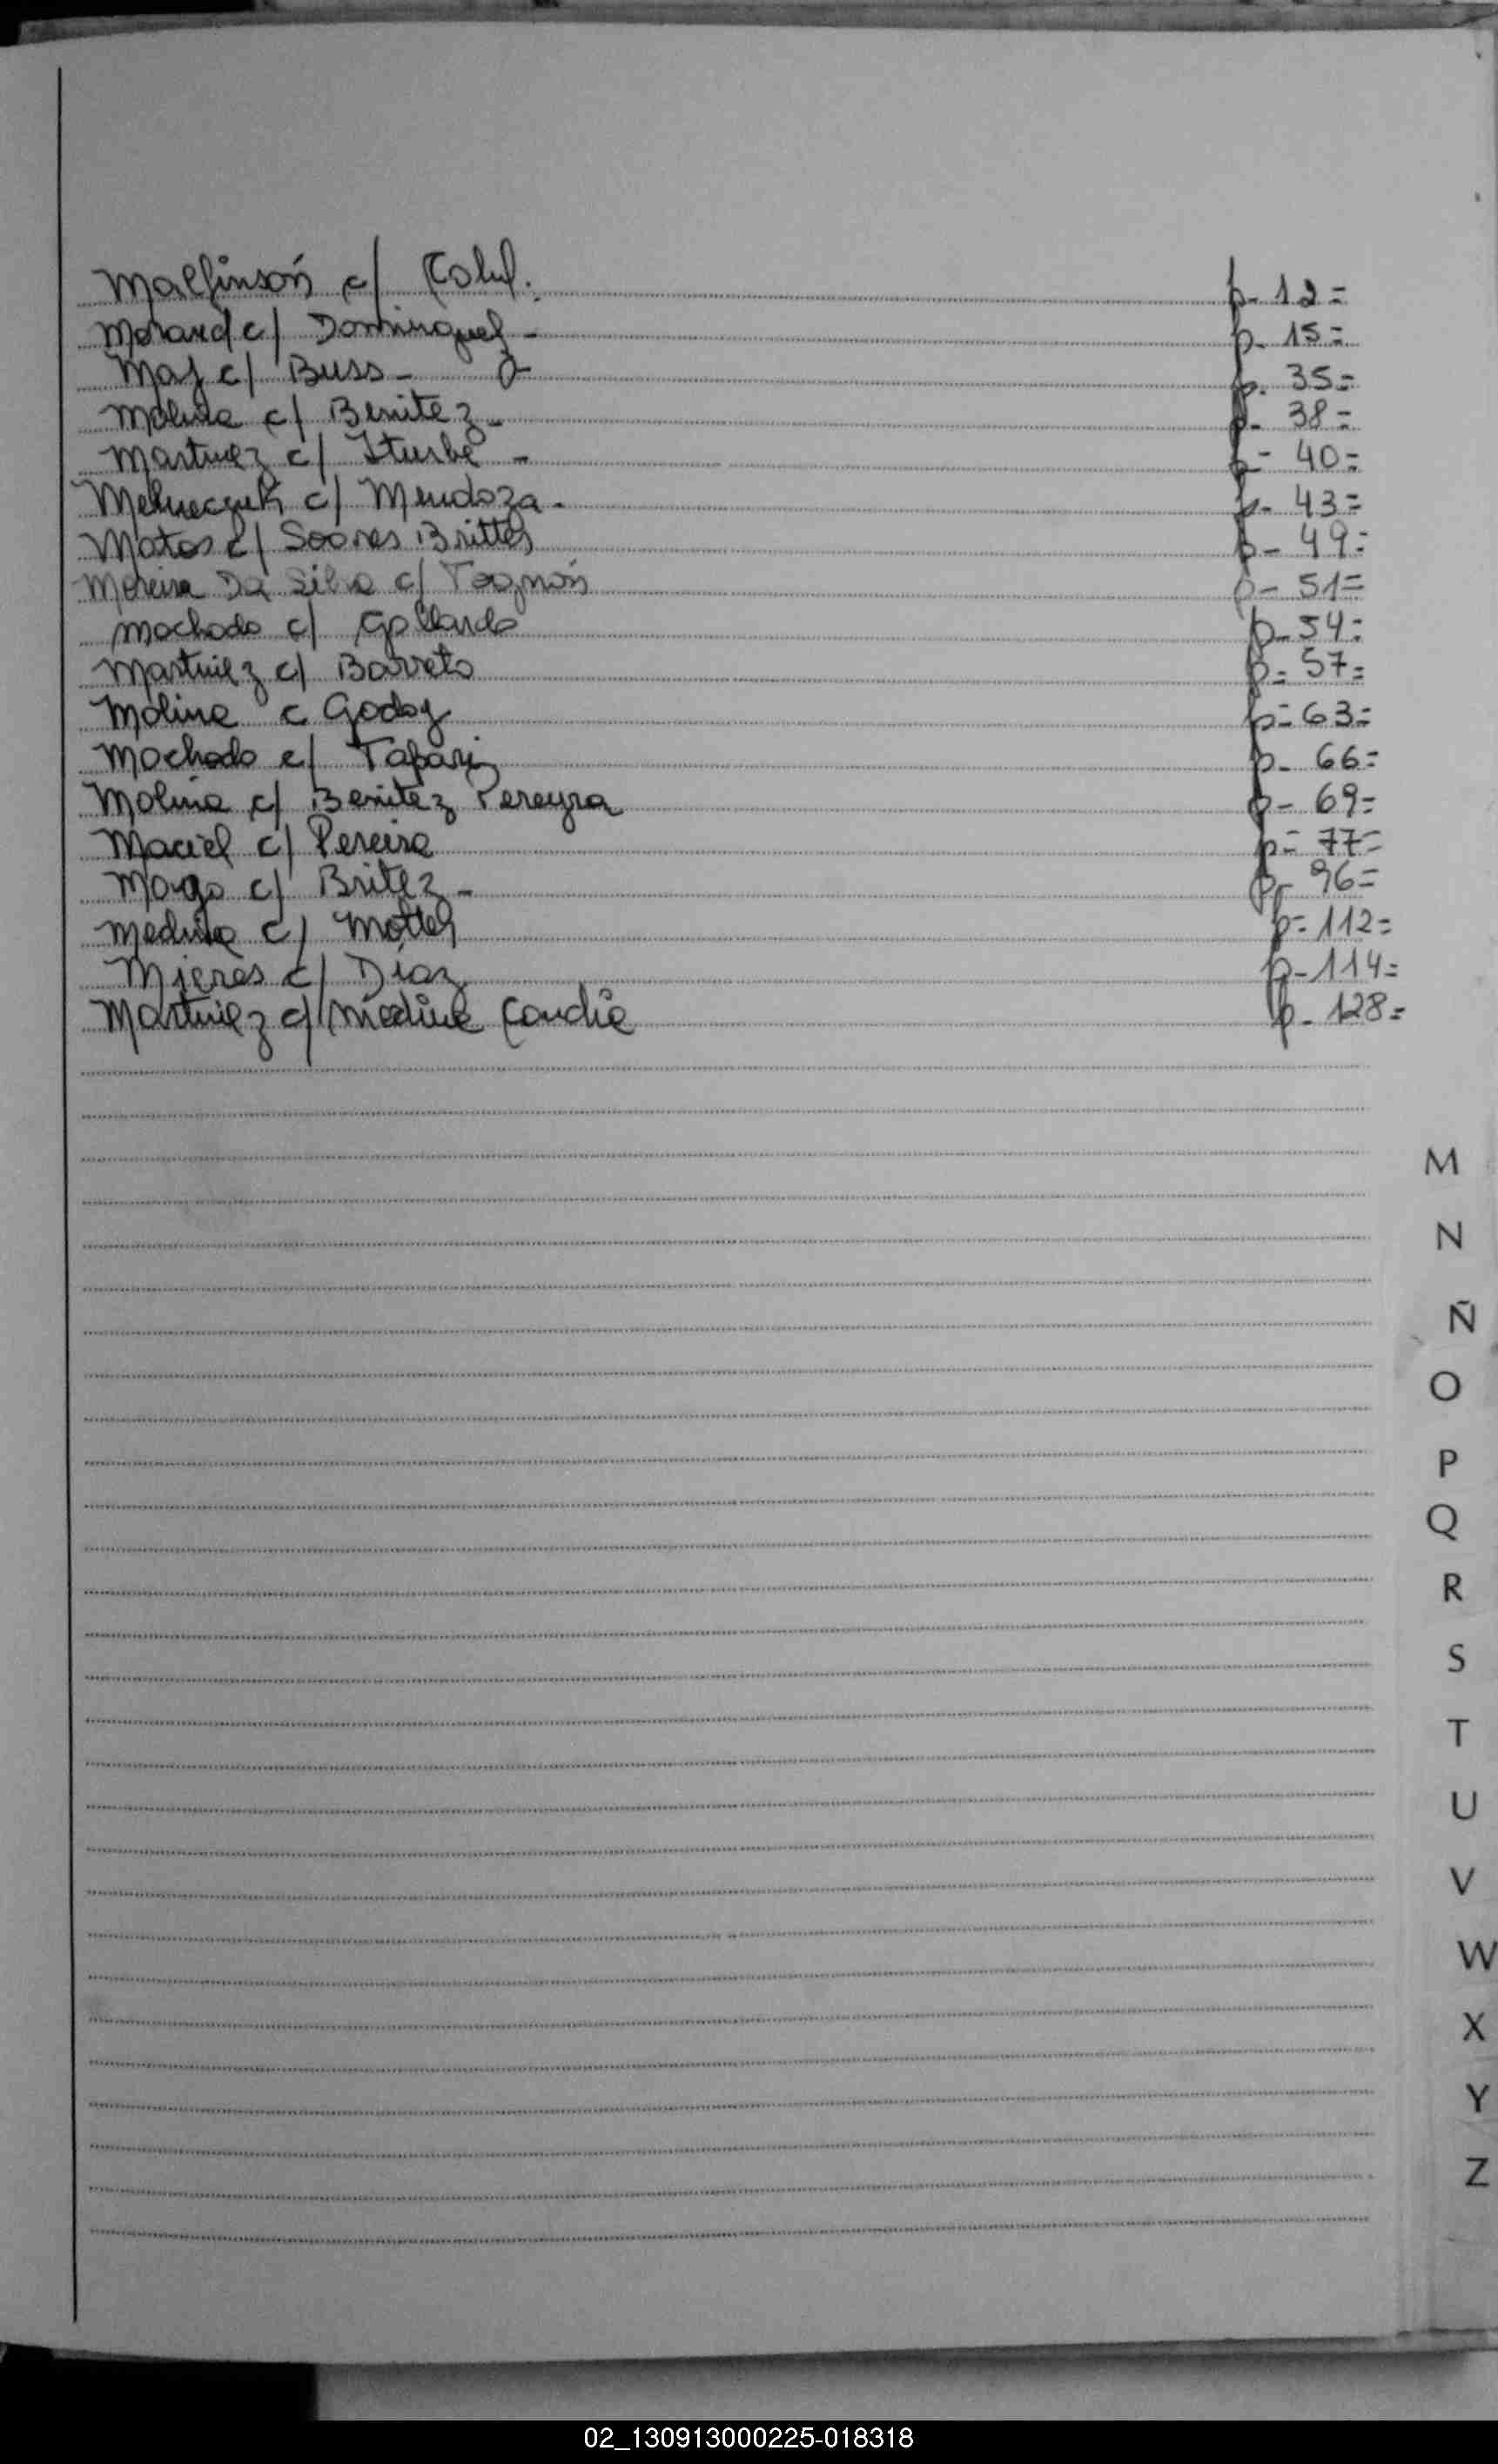 Mallinson c/ p- 12=
Morand c/ Dominguez - p- 15=
c/ Buss - p. 35=
Molina c/ Benitez - p- 38=
Martinez c/ Iturbe - p- 40=
c/ Mendoza - p- 43=
Matos c/ Soares Brittes p- 49=
Moreira Da Silva c/ p- 51=
Machado c/ Gallardo p- 54=
Martinez c/ Barreto p- 57=
Molina c Godoy p- 63=
Machado c/ p- 66=
Molina c/ Benitez Pereyra p- 69=
Maciel c/ Pereira p- 77=
c/ Britez - p- 96=
Medina c/ p- 112=
Mieres c/ Díaz p- 114=
Martinez c/ Medina Candia p- 128=
M
N
Ñ
O
P
Q
R
S
T
U
V
W
X
Y
Z
02_130913000225-018318